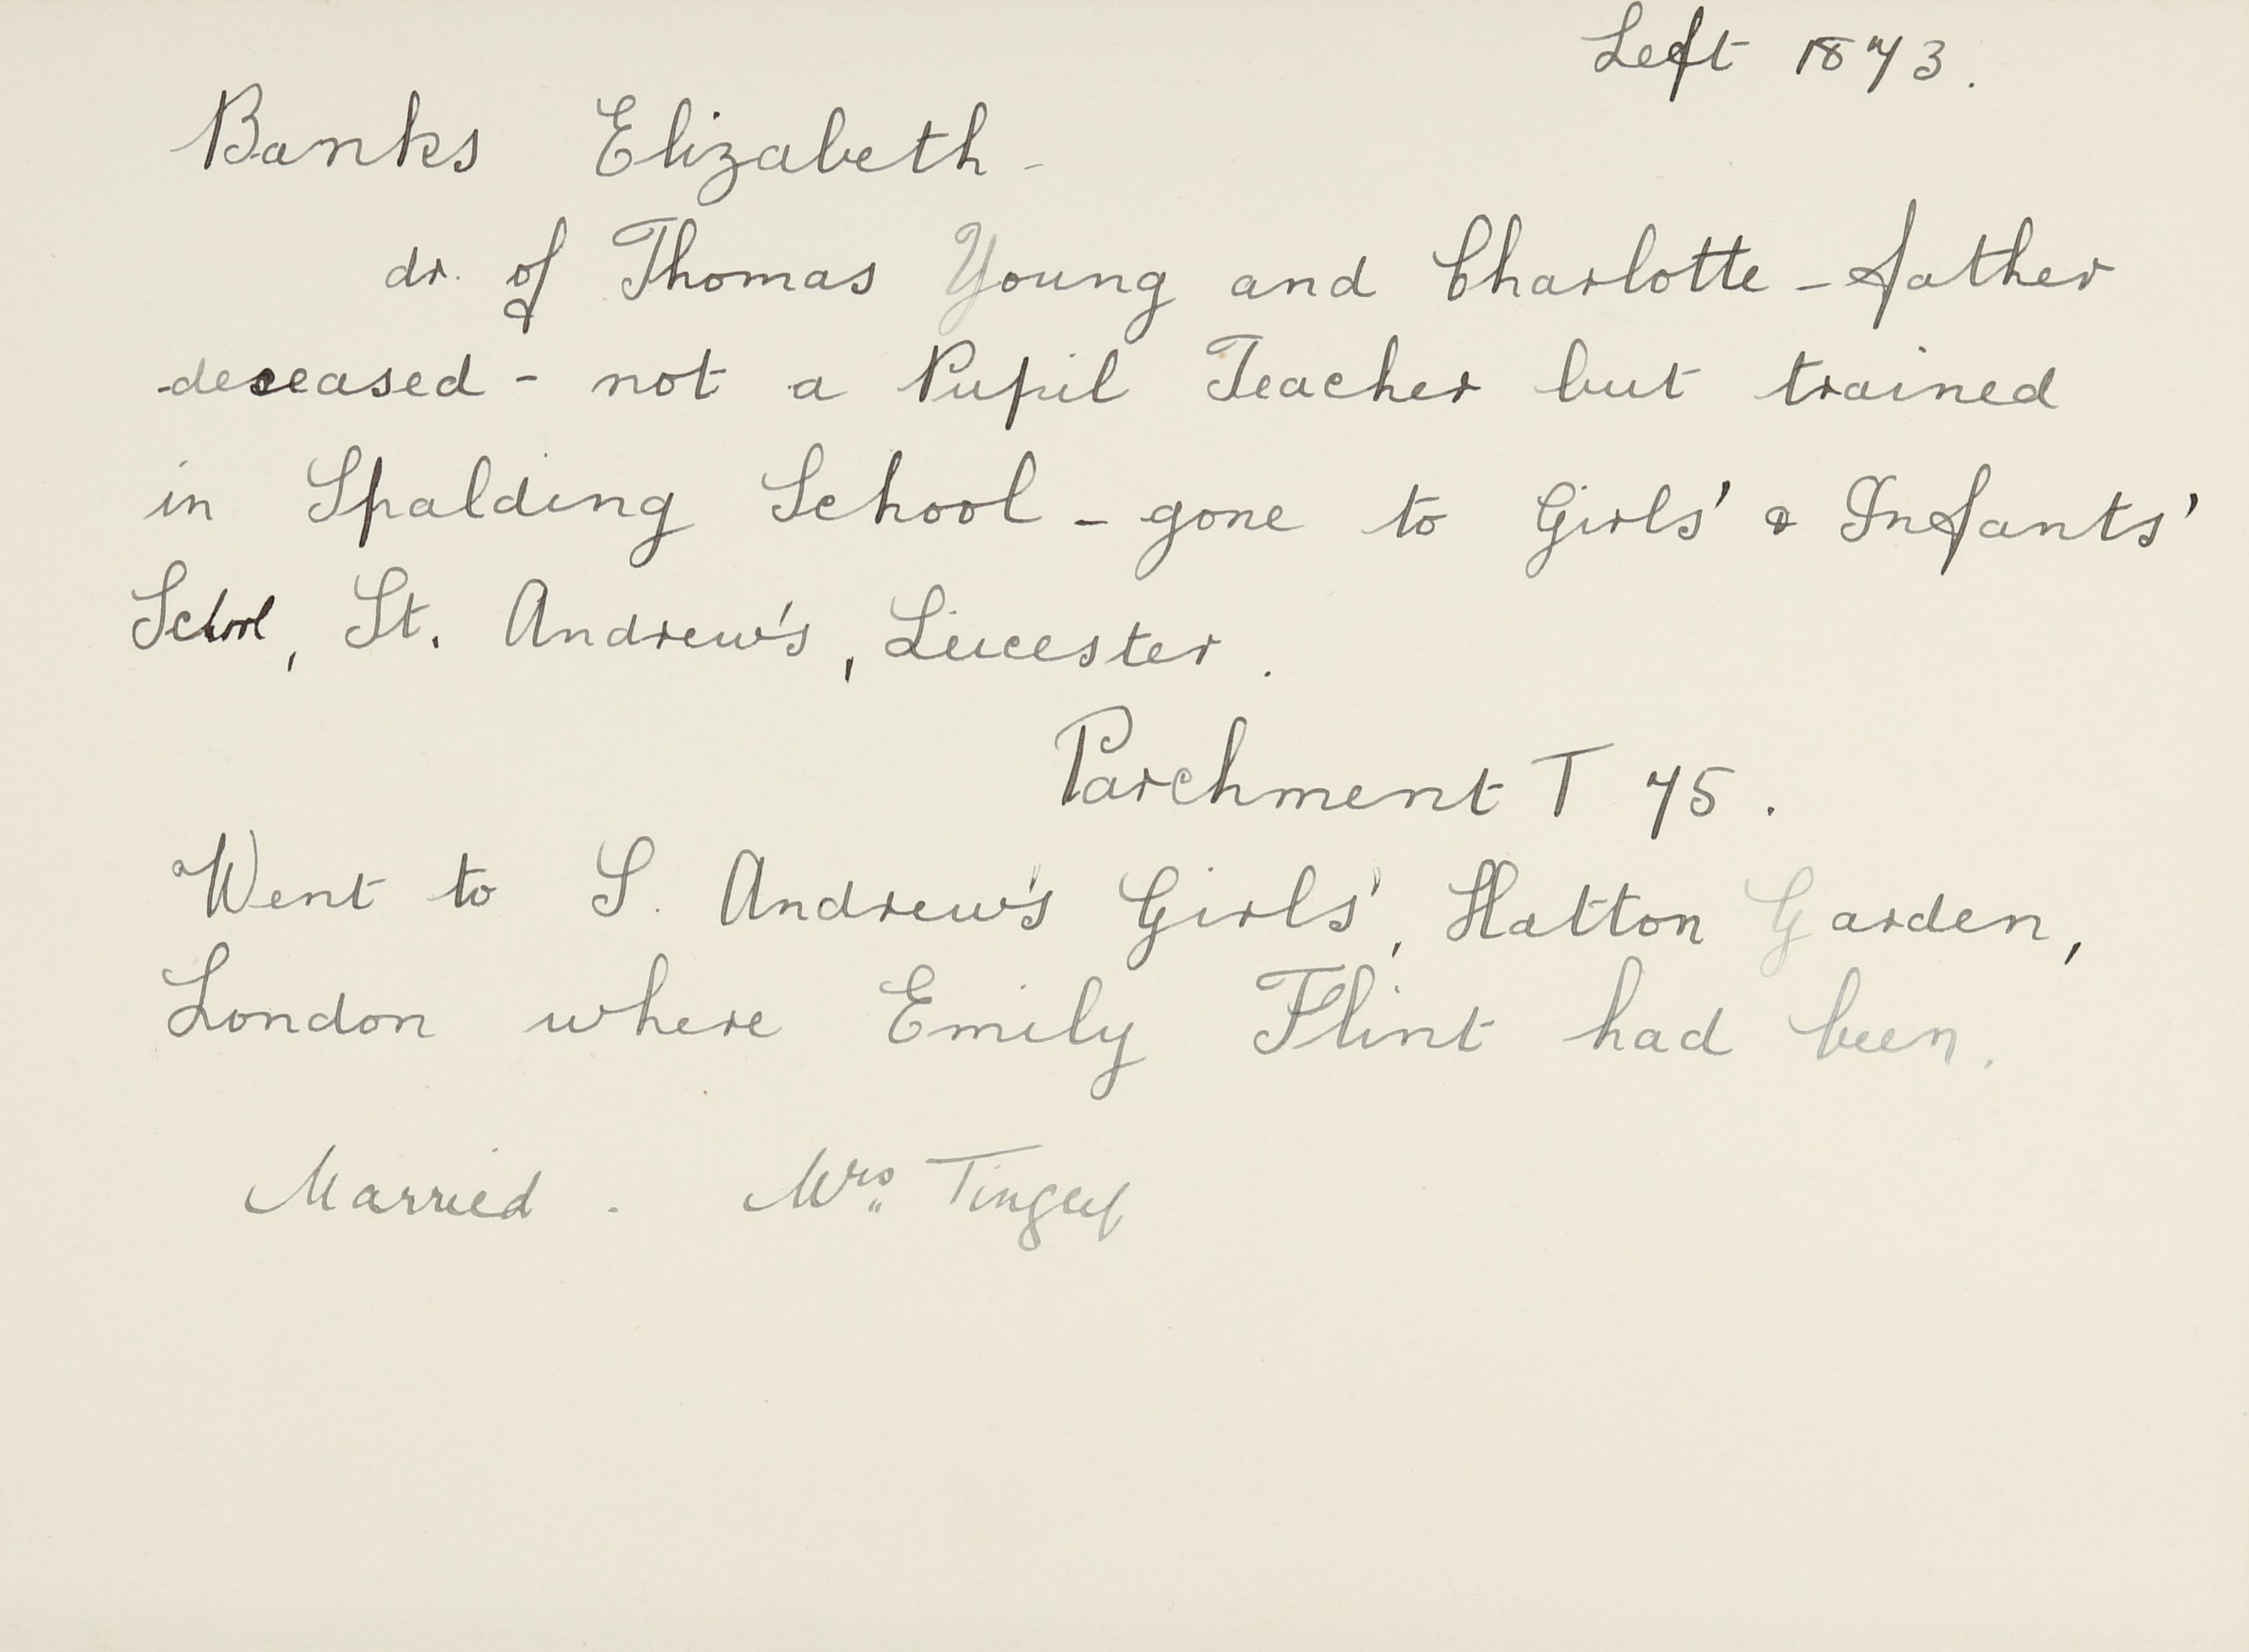 Left 1873.
Banks Elizabeth -
dr. of Thomas Young and Charlotte - father
deceased - not a Pupil Teacher but trained
in Spalding School - gone to Girls' & Infants'
School, St. Andrew's, Leicester.
Parchment T 75.
Went to S. Andrew's Girls', Hatton Garden,
London where Emily Flint had been.
Married. Mrs. Tingey